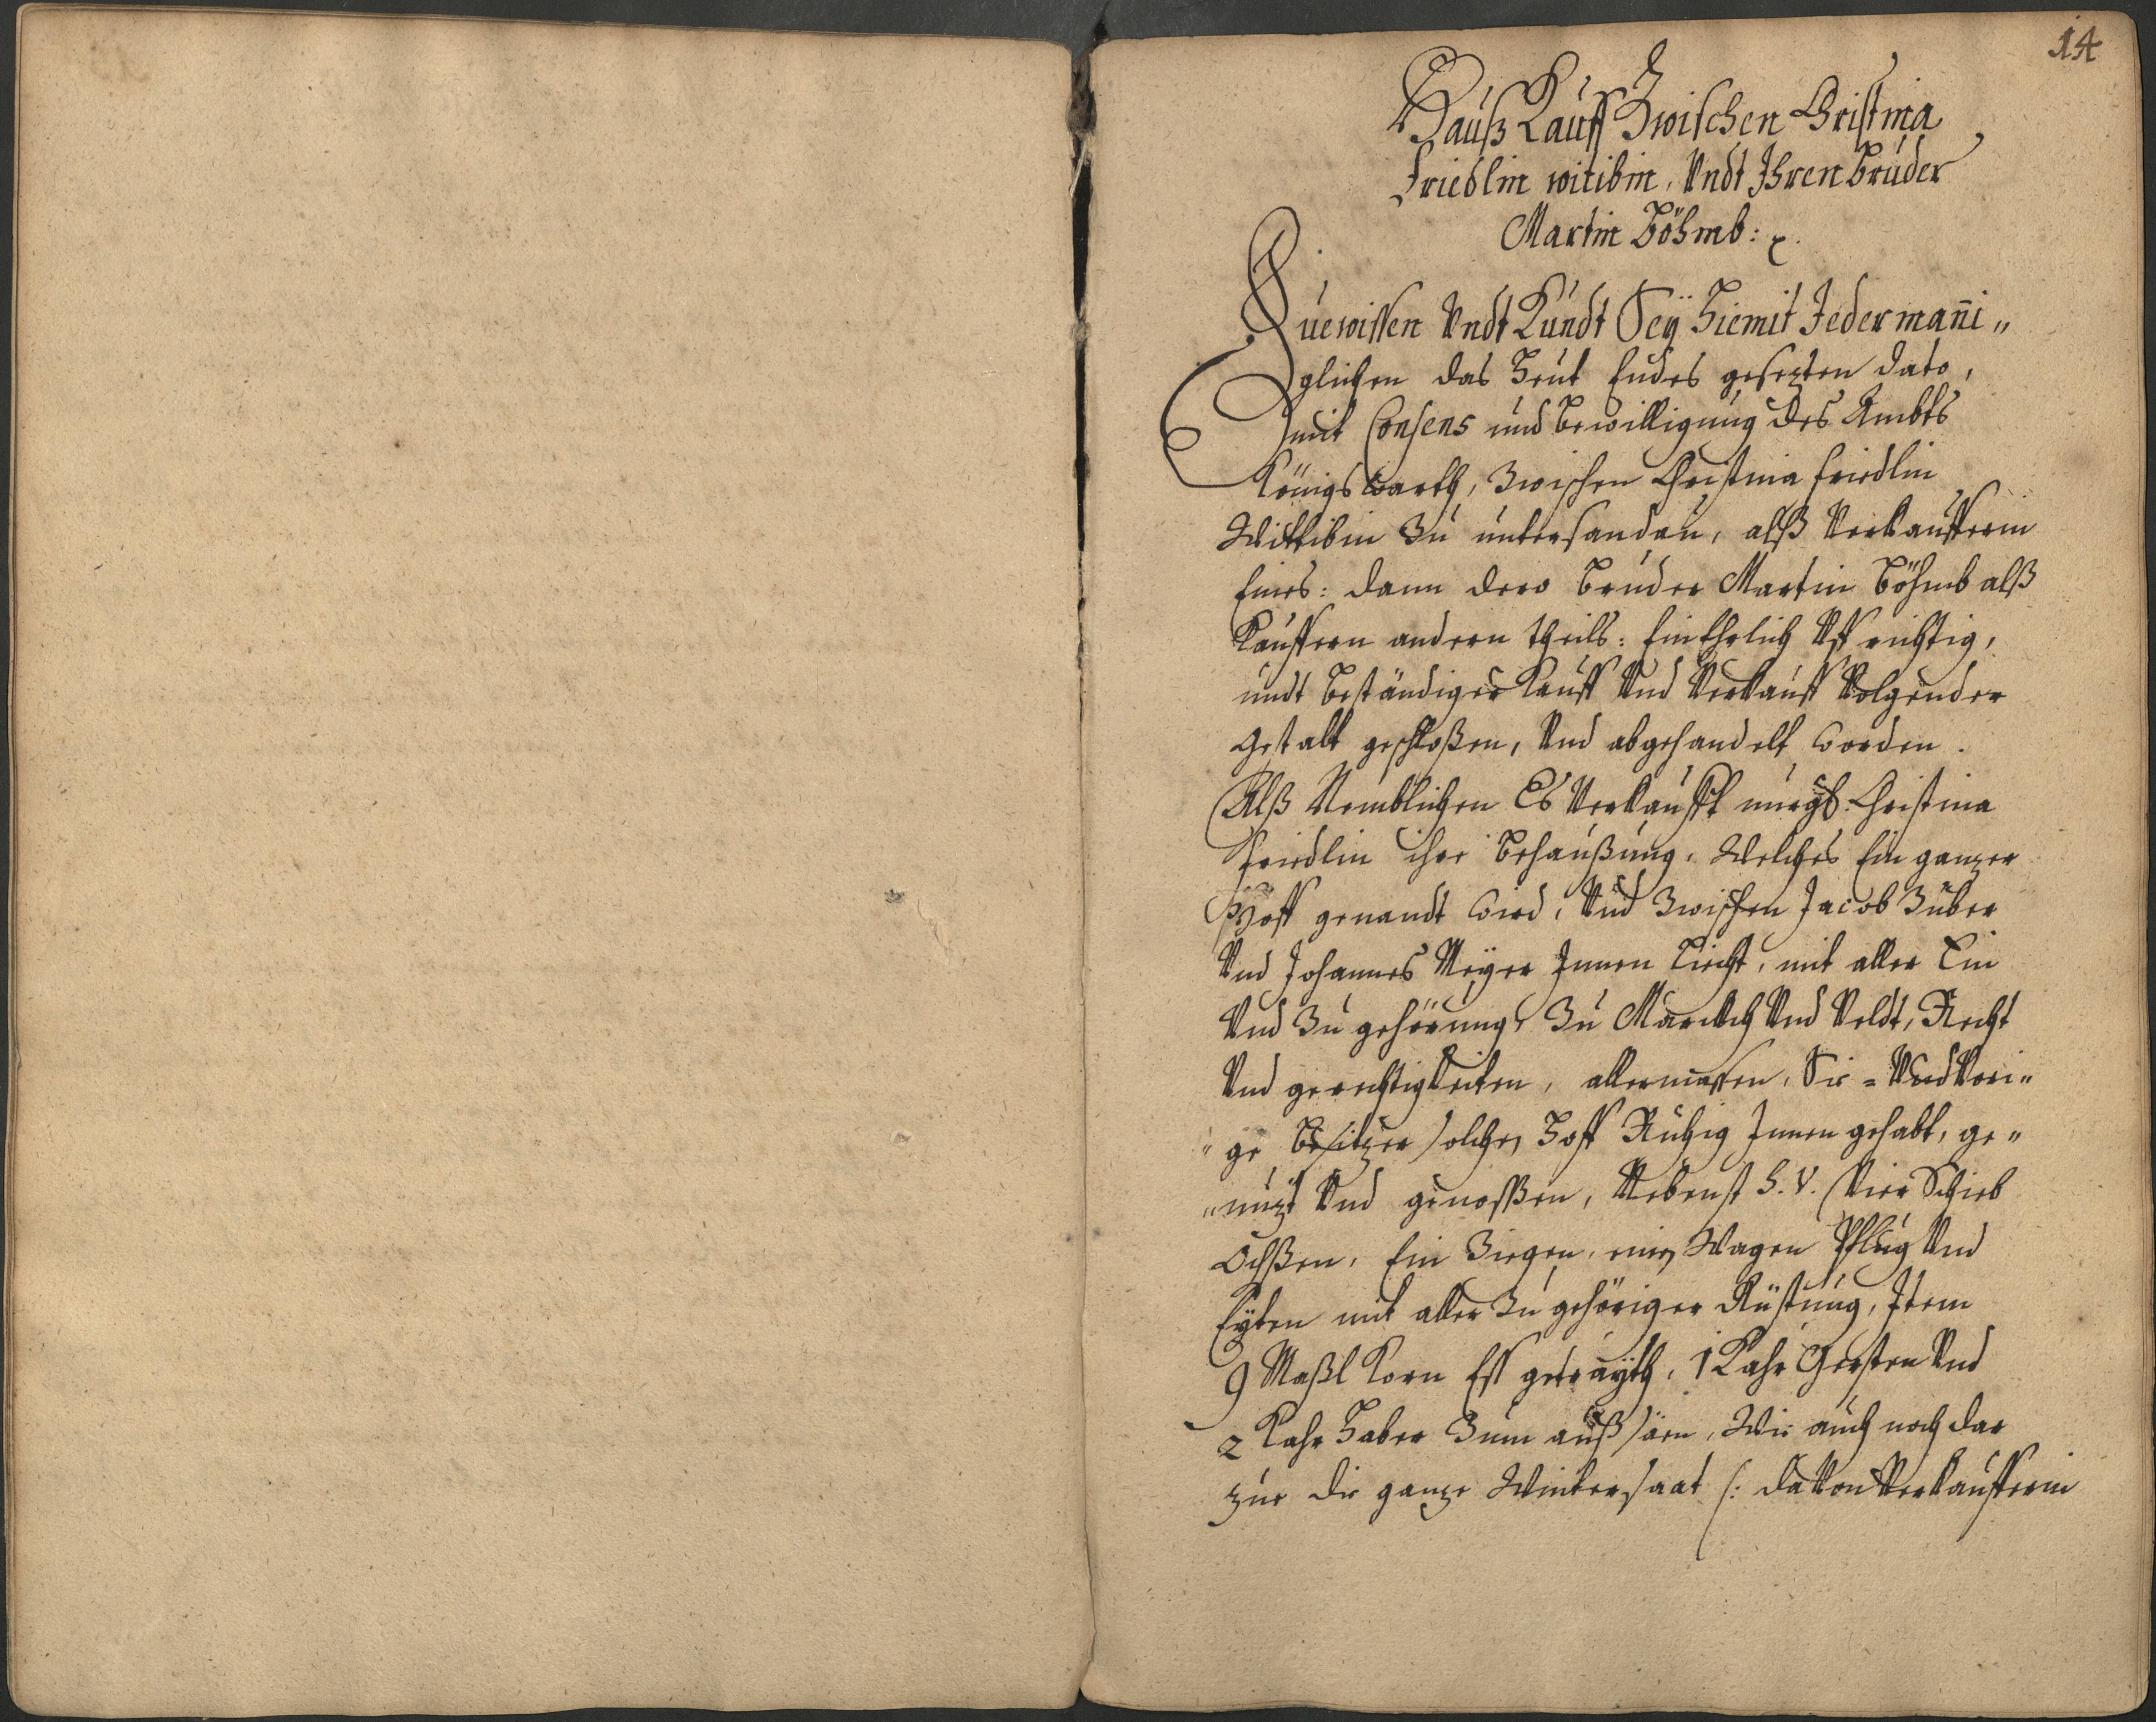 14
Hauß Kauff Zwischen Christina
Friedlin witibin, Vndt Ihren bruder
Martin Böhmb: 
Zuewissen Vndt Kundt Seÿ Hiemit Jedermañi„
glichen das Heut Endes gesezten dato,
mit Consens und bewilligung des Ambts
Königswarth, Zwischen Christina Friedlin
Wittibin Zu untersandau, alß Verkaufferin
Eines: dann dero bruder Martin Böhmb alß
Kauffern andern theils: Ein Ehrlich Vffrichtig,
undt beständiger Kauff Vnd Verkauff Volgender
gestalt geschloßen, Vnd abgehandelt worden.
Alß Nemblichen Es Verkaufft Christina
Friedlin ihre behaußung, Welches Ein ganzer
Hoff genandt wird, Vnd Zwischen Jacob Zuber
Vnd Johannes Meÿer Innen Liecht, mit aller Ein
Vnd Zu gehörung, Zu Vnd Veldt, Recht
Vnd gerechtigkeiten, allermassen, Sie = Vnd Vori„
„ge besitzer solchen Hoff Ruhig Innen gehabt, ge„
„nuzt Vnd genossen, Nebenst S. V. Vier Schieb
Ochßen, Ein Ziegen, einen Wagen Pflug Vnd
Eyten mit aller Zu gehöriger Rüstung, Item
9 Maßl Korn Eß geträyth, 1 Kahr Gersten Vnd
2 Kahr Haber Zum auß säen, Wie auch noch dar
zue die ganze Wintersaat /: daVon Verkaufferin